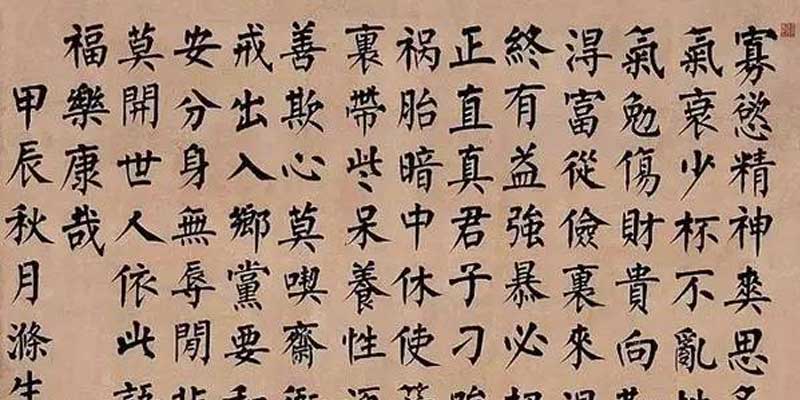 寡慾精神爽思多
氣衰少杯不亂性
氣勉傷財貴向
淂富從儉裏來溫
終有益強暴必招
正直真君子刁
禍胎暗中休使
裏帶些呆養性
善欺心莫喫齋衙
戒出入鄉黨要和
安分身無辱閒非
莫開世人依此語
福樂康哉
甲辰秋月滌生